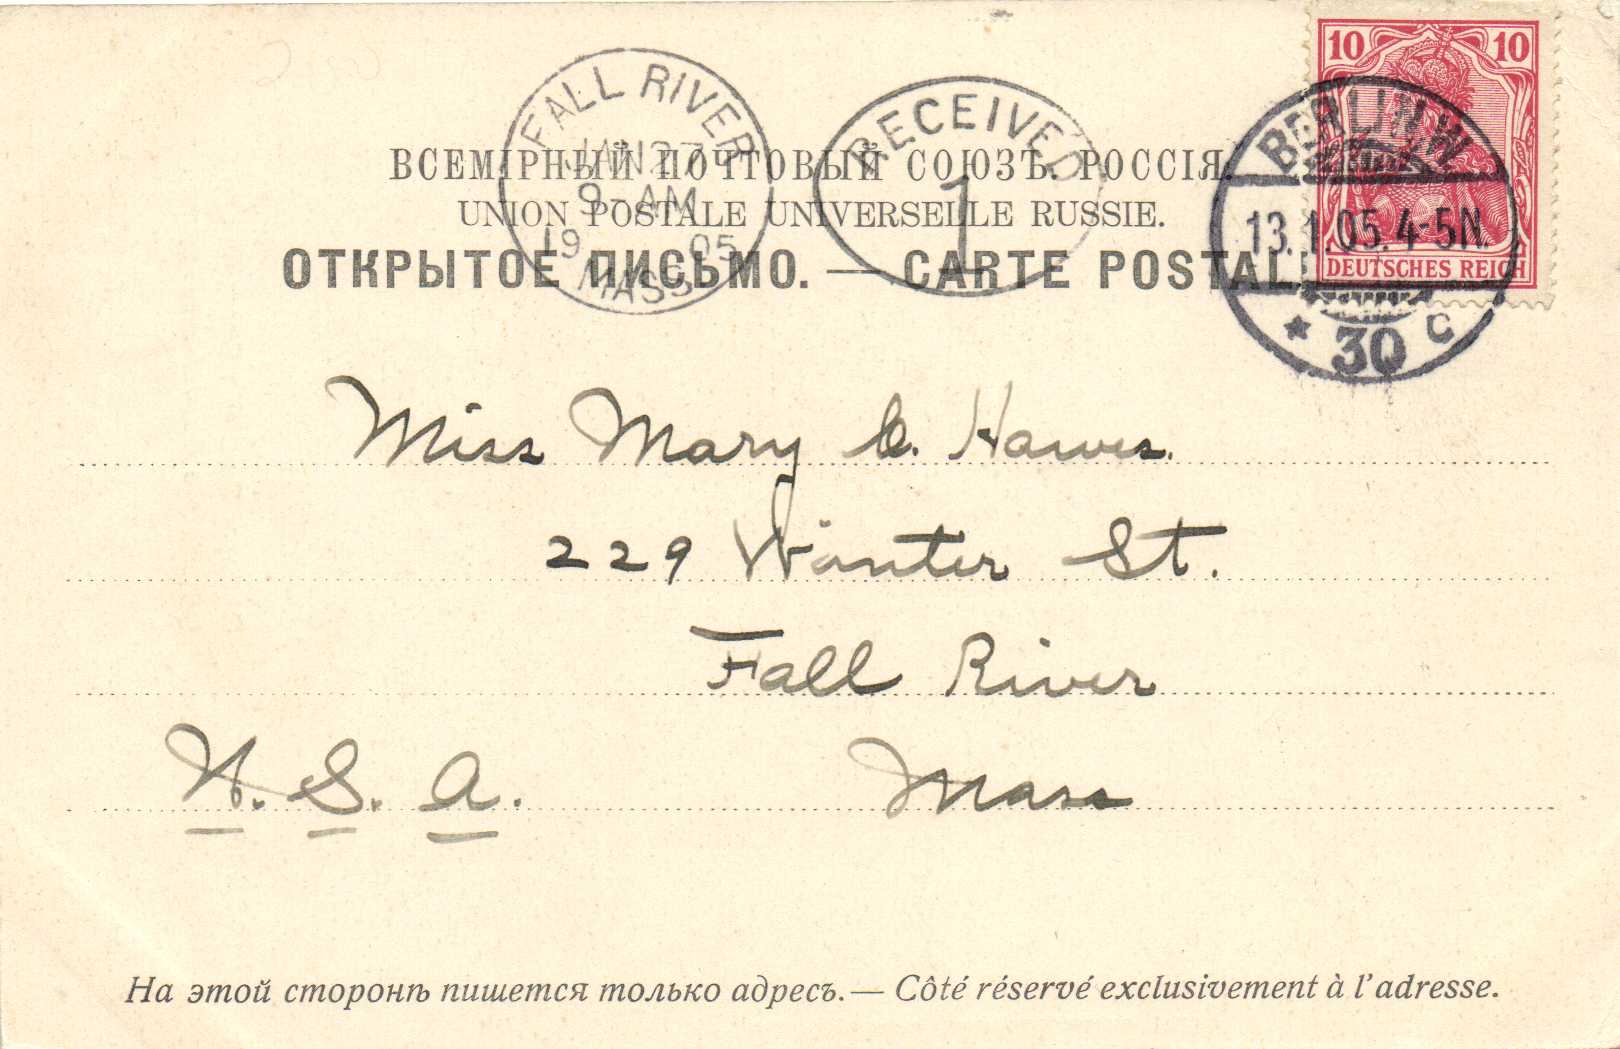 10 10
DEUTSCHES REICH
BERLIN.W.
13.1.05.4-5N.
* 30 c
FALL RIVER
JAN 27
9-AM
19 05
MASS.
RECEIVED
1
ВСЕМІРНЫЙ ПОЧТОВЫЙ СОЮЗЪ. РОССІЯ.
UNION POSTALE UNIVERSELLE RUSSIE.
ОТКРЫТОЕ ПИСЬМО. — CARTE POSTALE
Miss Mary C. Hawes.
229 Winter St.
Fall River
U. S. A. Mass
На этой сторонѣ пишется только адресъ. — Côté réservé exclusivement à l'adresse.